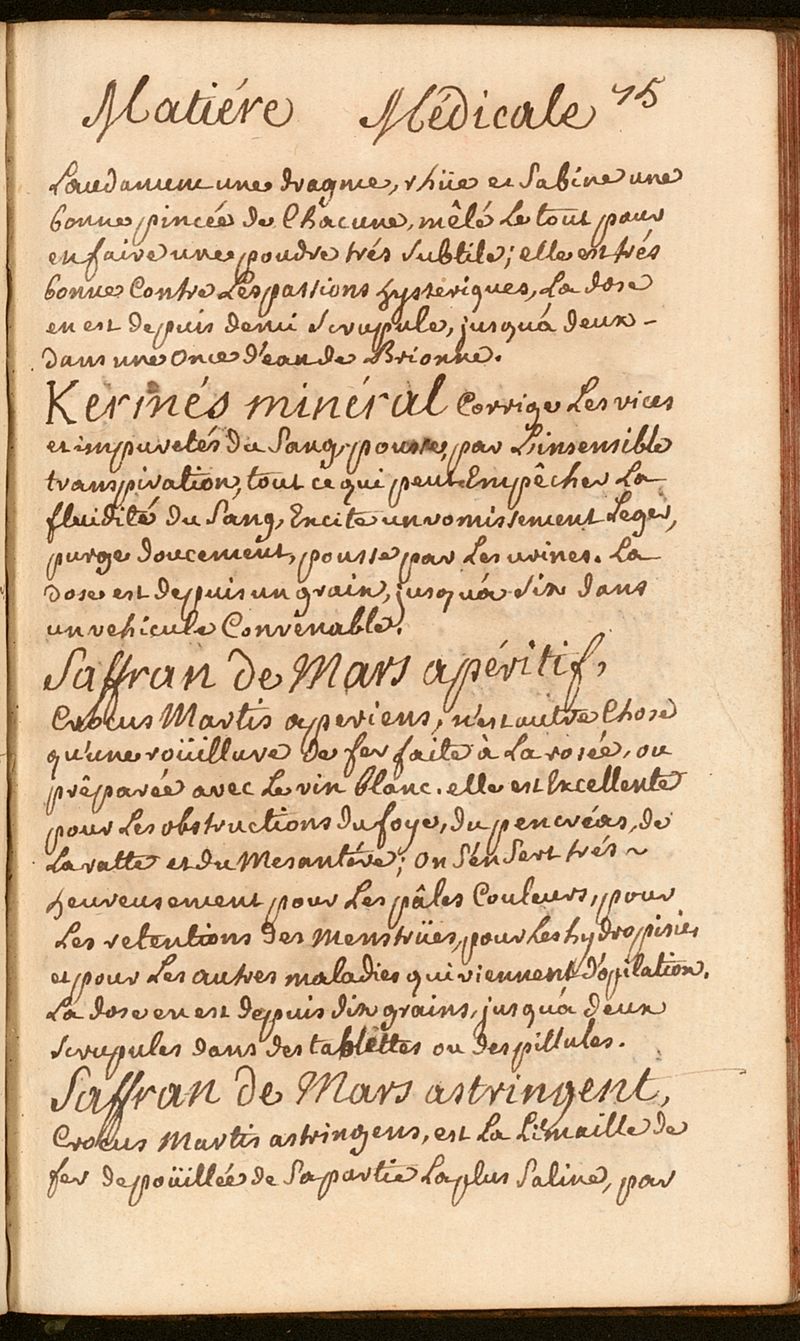 Matiére Médicale 75
Laudanum une dragme, rhüe et Sabine une
bonne pincée de Chacune, mêlé Le tout pour
en faire une poudre trés subtile; elle est trés
bonne Contre Les passions hysteriques, La dose
en est depuis demi scrupule, jusqu'a deux -
dans une Once d'eau de Brionne.
Kermés minéral Corrige Les vices
et impuretés du Sang, pousse, par L'insensible
transpiration, tout ce qui peut Empêcher La
fluidité du Sang, Excite un vomissement Leger,
purge doucement, pousse par Les urines. La
dose est depuis un grain, jusqu'a six dans
un vehicule Convenable.
Saffran de Mars apéritif,
Crocus Martis aperiens, n'est autre Chose
qu'une roüillure de fer faite à La rosée, ou
prêparée avec Le vin blanc. elle est Excellente
pour Les obstructions du foye, du pencréas, de
La ratte et du Mesantére; On s'en Sert trés ~
heureusement pour Les pâles Couleurs, pour
Les retentions des Menstrües, pour Les hydropisies
et pour Les autres maladies qui viennent d'opilation.
La dose en est depuis dix grains, jusqu'a deux
scrupules dans des tablettes ou des pillules.
Saffran de Mars astringent,
Crocus Martis astringens, est La Limaille de
fer depoüillée de Sa partie La plus Saline, par